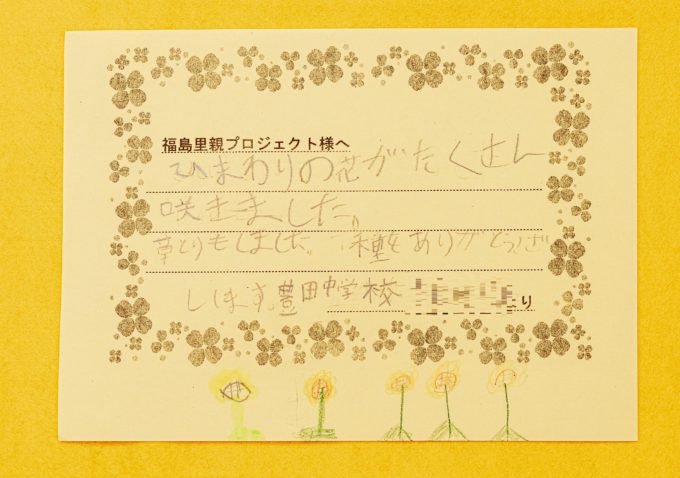 福島里親プロジェクト様へ
ひまわりの花がたくさん
咲きました。
草とりもしました。種をありがとうござ
います。豊田中学校
より